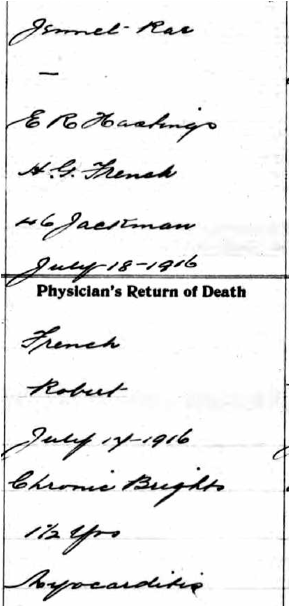 Jennet Rae
—
E R Hastings
H. G. French
46 Jackman
July 18-1916
Physician's Return of Death
French
Robert
July 17-1916
Chronic Brights
1½ Yrs
Myocarditis